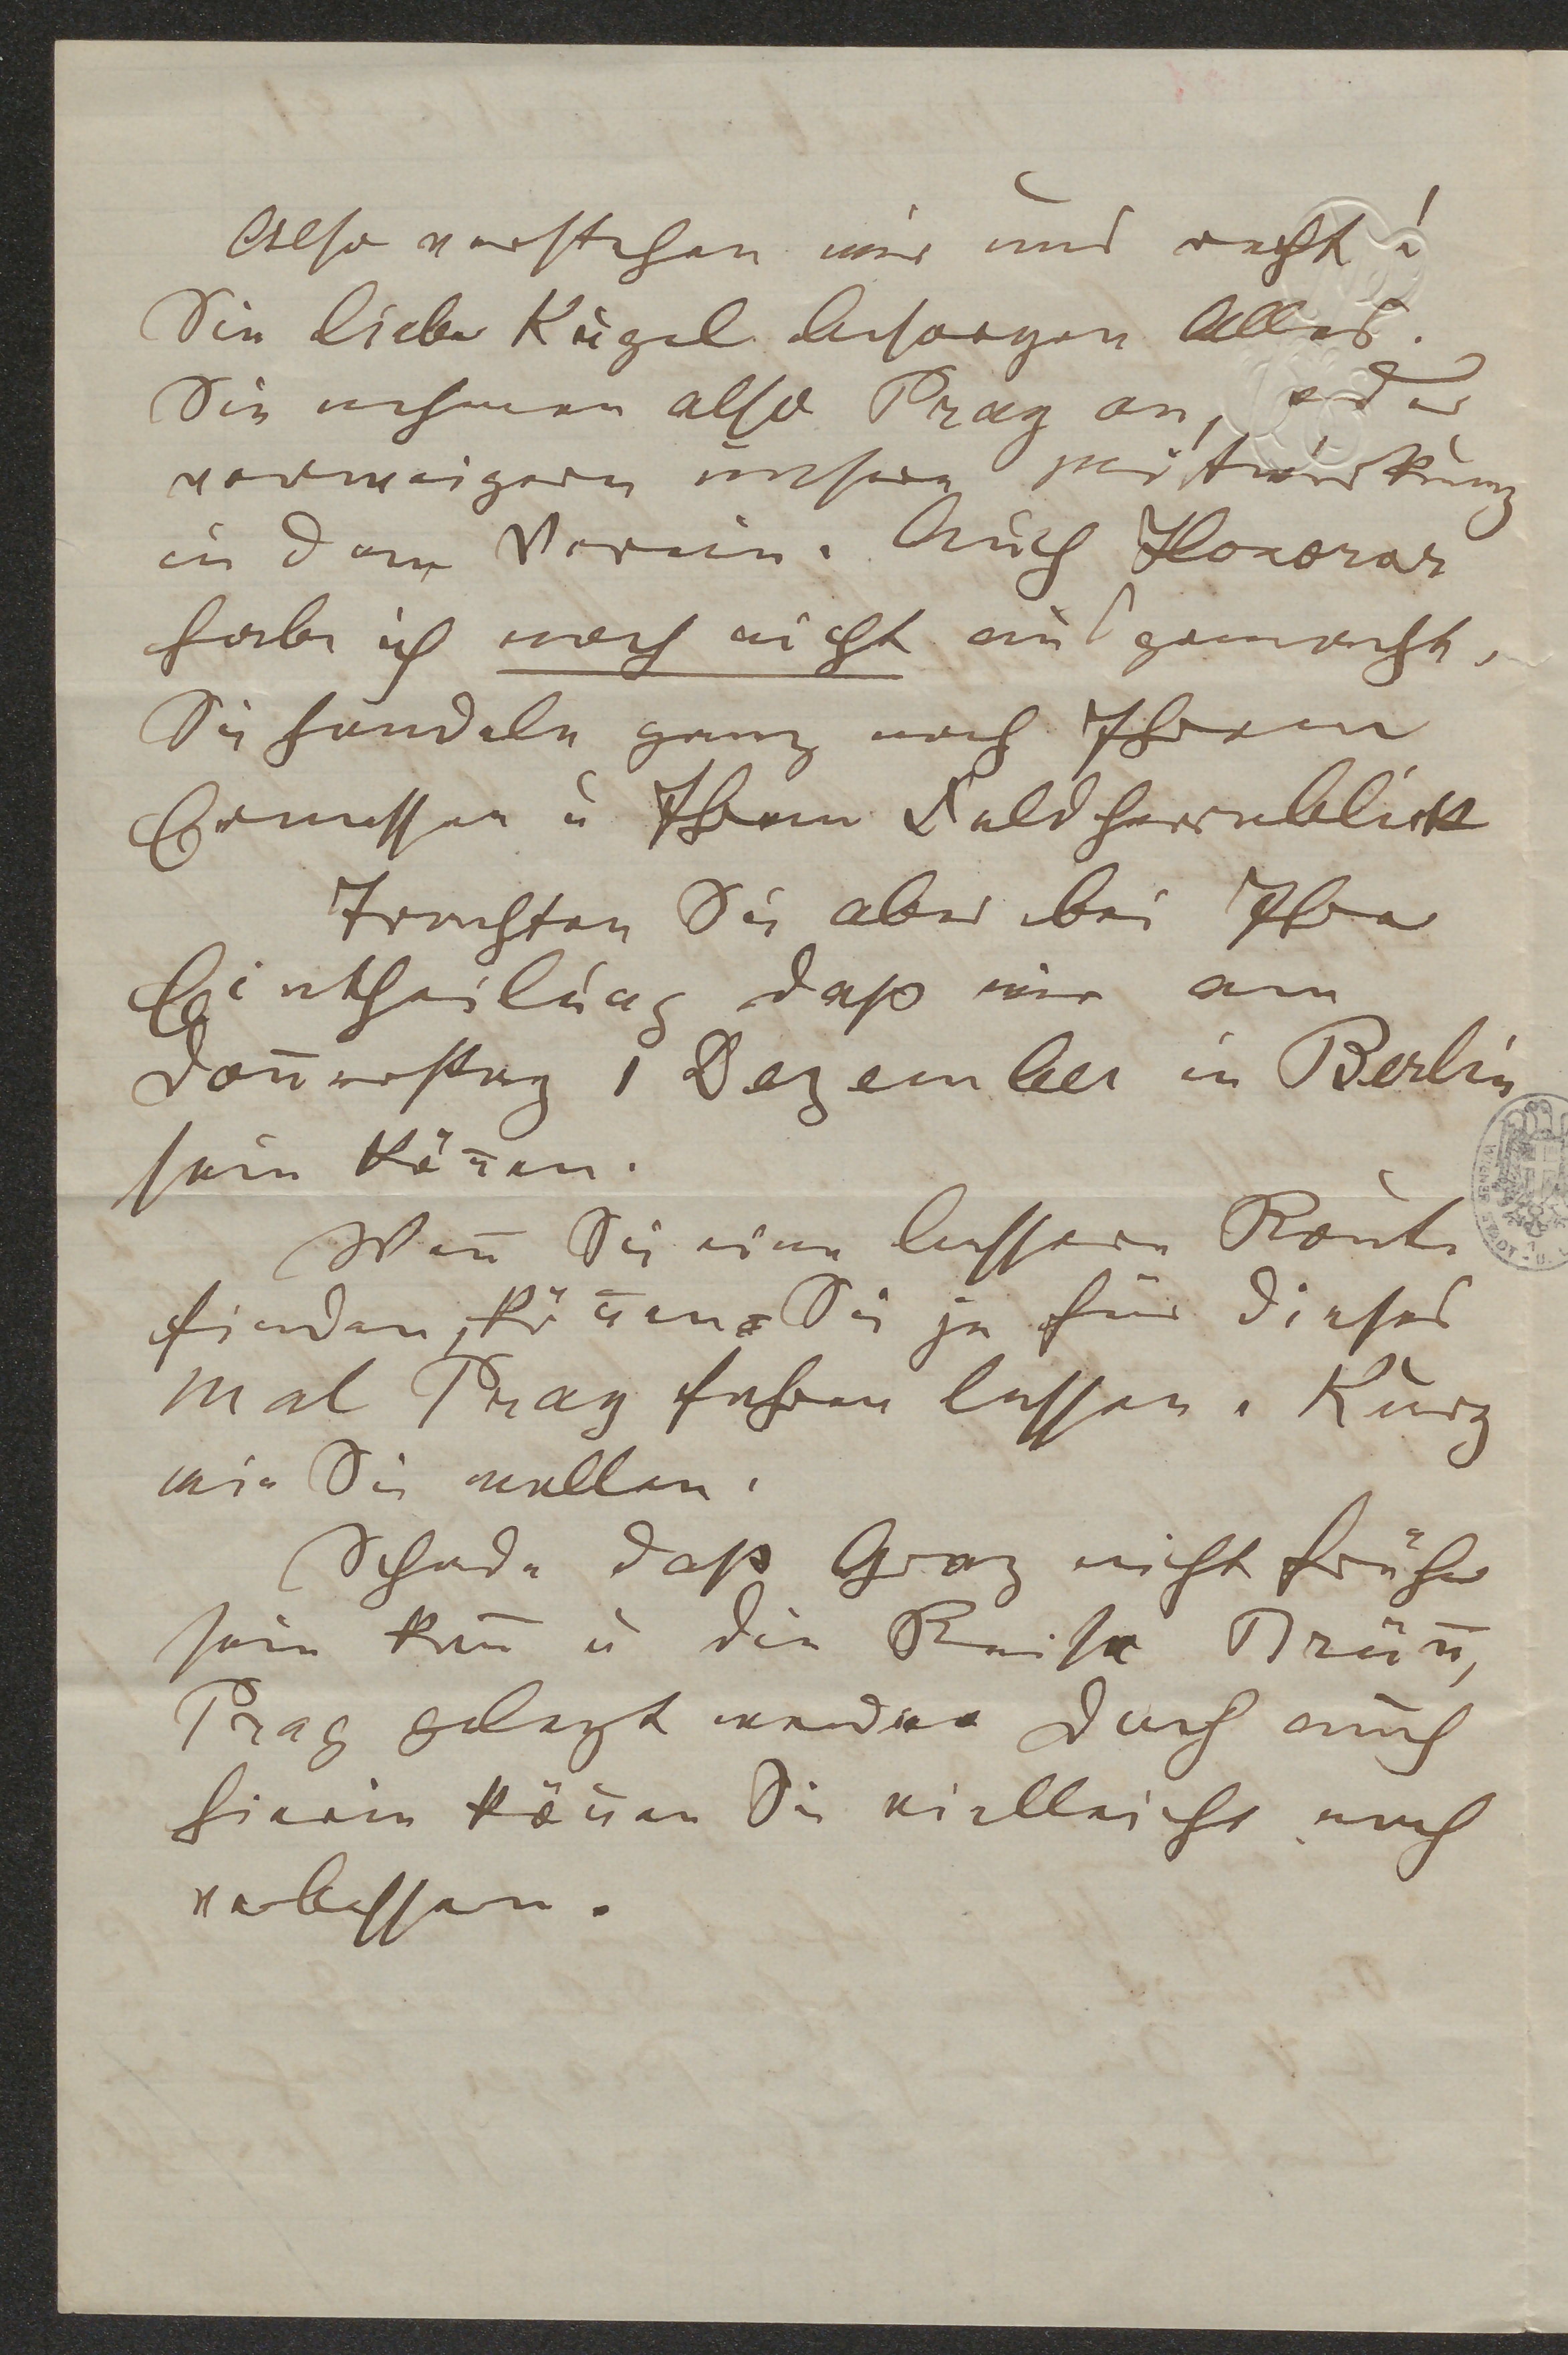 Also verstehen wir uns recht!
Sie lieber Kugel besorgen Alles.
Sie nehmen also Prag an, oder
verweigern unsere Mitwirkung
in dem Verein. Auch Honorar
habe ich noch nicht ausgemacht,
Sie handeln ganz nach Ihrem
Ermessen u Ihrem Feldherrnblick
Trachten Sie aber bei Ihrer
Eintheilung daß wir am
Don̄erstag 1 Dezember in Berlin
sein kön̄en.
Wen̄ Sie eine bessere Route
finden, kön̄en Sie ja für dieses
Mal Prag fahren lassen. Kurz
wie Sie wollen.
Schade daß Graz nicht früher
sein kan̄ u die Reise Brün̄,
Prag gelegt werden doch auch
hierin kön̄en Sie vielleicht noch
verbessern.